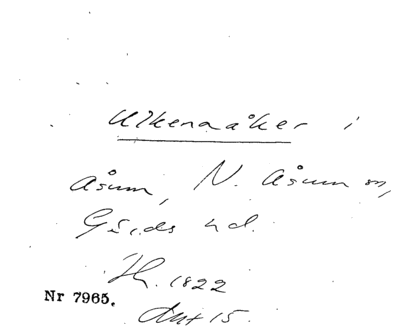 Ulkenaåker i
Åsum, N. Åsum sn,
Gärds hd.
H. 1822
Nr 7965.
Akt 15.